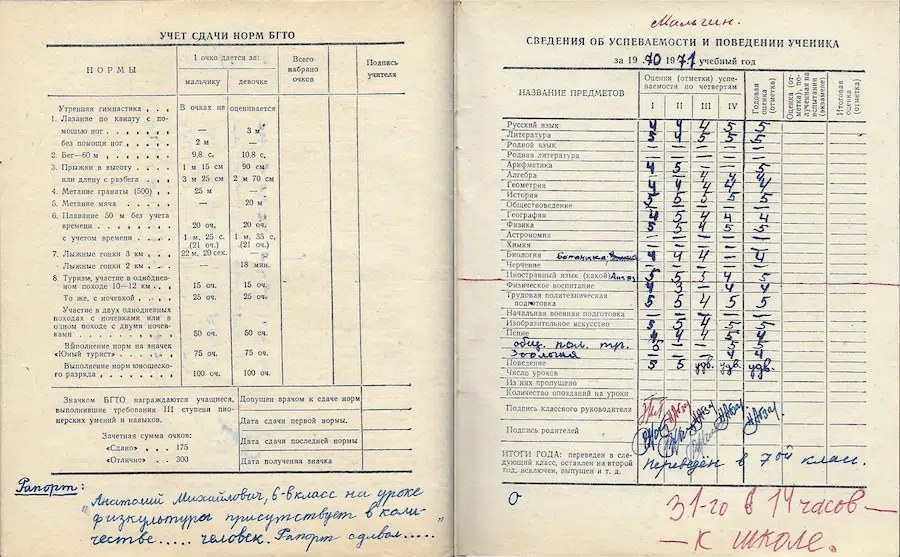 УЧЕТ СДАЧИ НОРМ БГТО
НОРМЫ
1 очко дается за:
мальчику
девочке
Всего набрано очков
Подпись учителя
Утренняя гимнастика . . . В очках не оценивается
1. Лазание по канату с по-
мощью ног . . . — 3 м
без помощи ног . . . 2 м —
2. Бег—60 м . . . 9,8 с. 10,8 с.
3. Прыжки в высоту . . . 1 м 15 см 90 см
или длину с разбега . . 3 м 25 см 2 м 70 см
4. Метание гранаты (500) . . 25 м —
5. Метание мяча . . . — 20 м
6. Плавание 50 м без учета
времени . . . 20 оч. 20 оч.
с учетом времени . . . 1 м. 25 с. 1 м. 35 с.
(21 оч.) (21 оч.)
7. Лыжные гонки 3 км . . . 22 м. 20 сек. —
Лыжные гонки 2 км . . . — 18 мин.
8. Туризм, участие в однднев-
ном походе 10—12 км . . . 15 оч. 15 оч.
То же, с ночевкой . . . 25 оч. 25 оч.
Участие в двух однодневных
походах с ночевками или в
одном походе с двумя ночев-
ками . . . 50 оч. 50 оч.
Выполнение норм на значек
«Юный турист» . . . 75 оч. 75 оч.
Выполнение норм юношеско-
го разряда . . . 100 оч. 100 оч.
Значком БГТО награждаются учащиеся,
выполнившие требования III ступени пио-
нерских умений и навыков.
Зачетная сумма очков:
«Сдано» . . . 175
«Отлично» . . 300
Допущен врачом к сдаче норм
Дата сдачи первой нормы.
Дата сдачи последней нормы
Дата получения значка
Рапорт:
„Анатолий Михайлович, 6-в класс на уроке
физкультуры присутствует в коли-
честве..... человек. Рапорт сдавал.....”
Мальгин.
СВЕДЕНИЯ ОБ УСПЕВАЕМОСТИ И ПОВЕДЕНИИ УЧЕНИКА
за 1970 1971 учебный год
НАЗВАНИЕ ПРЕДМЕТОВ
Оценки (отметки) успе-
ваемости по четвертям
I II III IV
Годовая оценка (отметка)
Оценка (от-
метка), по-
лученная на
испытании
(экзамене)
Итоговая оценка (отметка)
Русский язык 4 4 4 5 5
Литература 5 4 4 5 5
Родной язык — — — — —
Родная литература — — — — —
Арифметика 4 5 — — 5
Алгебра
Геометрия 4 4 4 4 4
История 5 5 5 5 5
Обществоведение — — — — —
География 4 5 4 4 4
Физика 5 5 4 5 5
Астрономия — — — — —
Химия — — — — —
Биология Ботаника, 4 4 4 — 4
Черчение — — — — —
Иностранный язык (какой) Англ 5 5 5 4 5
Физическое воспитание 4 3 — 4 4
Трудовая политехническая
подготовка 5 5 4 5 5
Начальная военная подготовка — — — — —
Изобразительное искусство 5 5 4 5 5
Пение 4 4 4 5 4
общ. пол. тр. 5
Зоология — — — 4 4
Поведение 5 5 удв. удв. удв.
Число уроков
Из них пропущено
Количество опозданий на уроки
Подпись классного руководителя
Подпись родителей
ИТОГИ ГОДА: переведен в сле-
дующий класс, оставлен на второй
год, исключен, выпущен и т. д.
Переведён в 7ой класс.
31-го в 14 часов —
— К ШКОЛЕ.